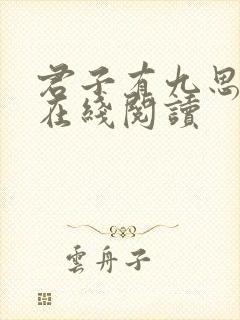 君子有九思
在綫閱讀
雲舟子